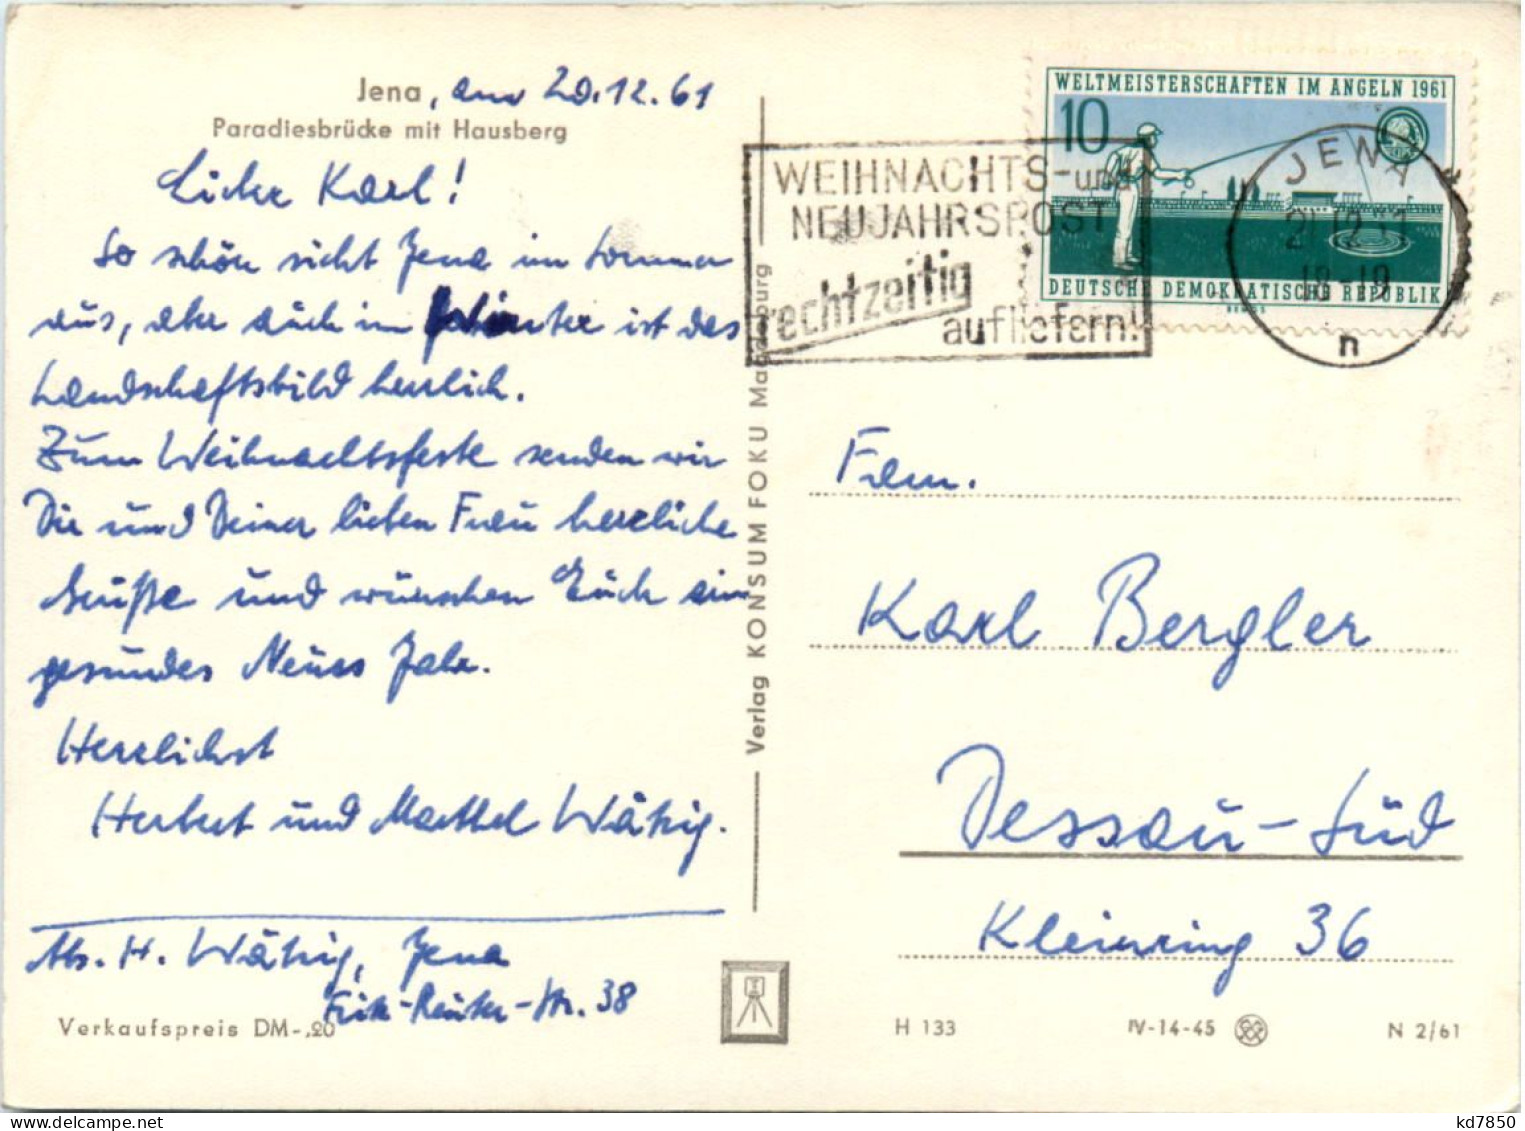 Jena, am 20.12.61
Paradiesbrücke mit Hausberg
Lieber Karl!
So schön sieht Jena im Sommer
aus, aber auch im Winter ist das
Landschaftsbild herrlich.
Zum Weihnachtsfeste senden wir
Dir und Deiner lieben Frau herzliche
Grüße und wünschen Euch ein
gesundes Neues Jahr.
Herzlichst
Herbert und Marthel Wätzig.
Abs. H. Wätzig, Jena
Fritz-Reuter-Str. 38
Verkaufspreis DM -,20
Verlag KONSUM FOKU Magdeburg
WELTMEISTERSCHAFTEN IM ANGELN 1961
10
DEUTSCHE DEMOKRATISCHE REPUBLIK
WEIHNACHTS- und
NEUJAHRSPOST
rechtzeitig
aufliefern!
JENA
21.12.61
18-19
n
Fam.
Karl Bergler
Dessau-Süd
Kleinring 36
H 133
IV-14-45
N 2/61
kd7850